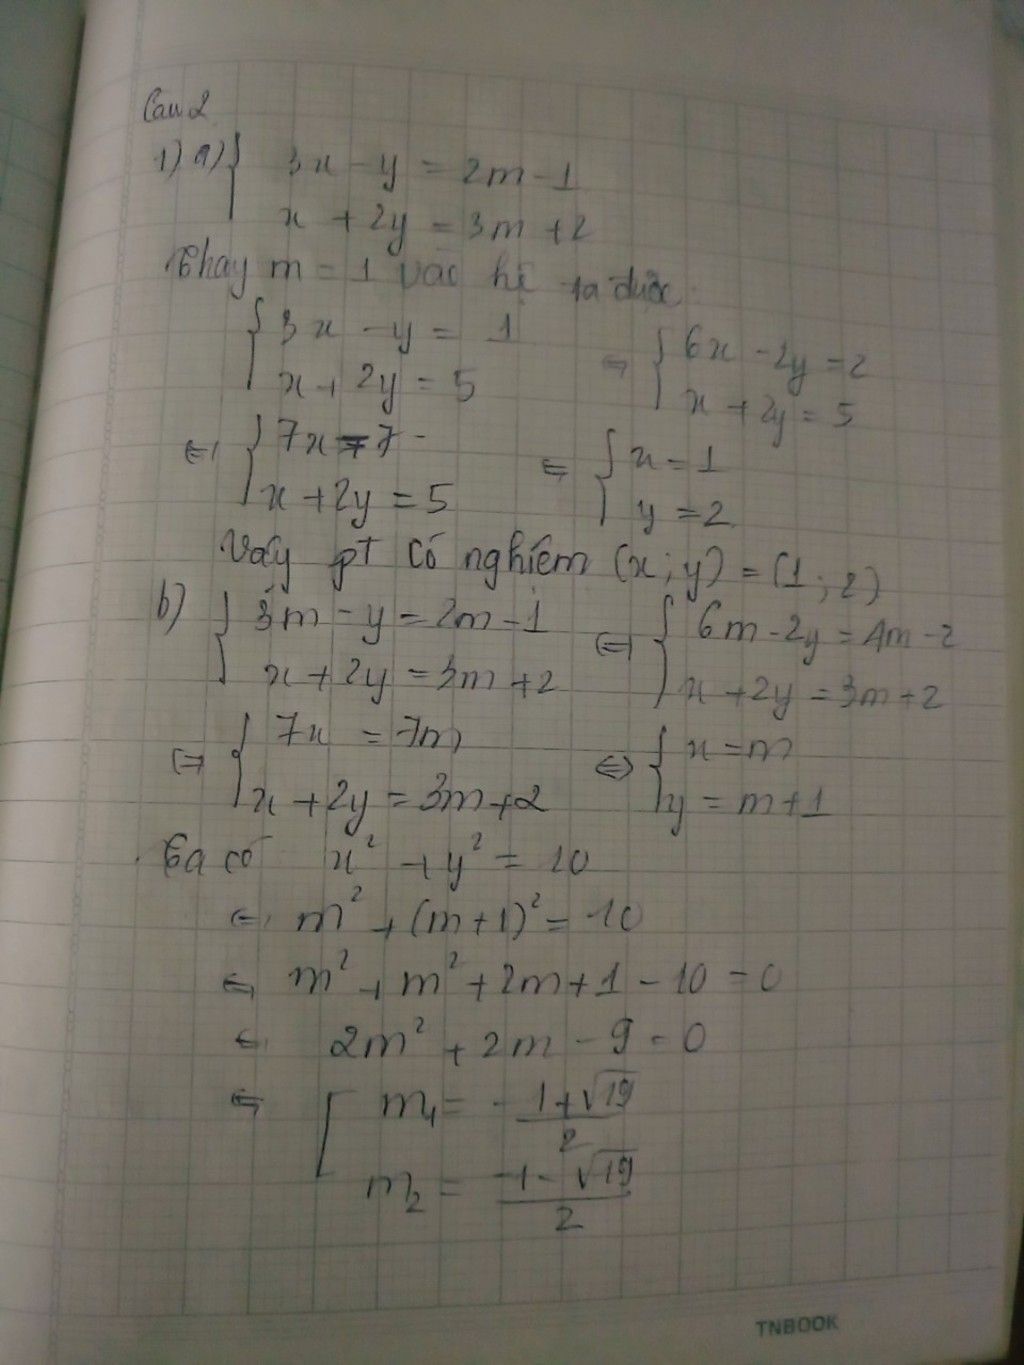 Câu 2
1) a) { 3x - y = 2m - 1
x + 2y = 3m + 2
Thay m = 1 vào hệ ta được
{ 3x - y = 1 ⇔ { 6x - 2y = 2
x + 2y = 5 x + 2y = 5
⇔ { 7x = 7 ⇔ { x = 1
x + 2y = 5 y = 2
Vậy pt có nghiệm (x; y) = (1; 2)
b) { 3m - y = 2m - 1 ⇔ { 6m - 2y = 4m - 2
x + 2y = 3m + 2 x + 2y = 3m + 2
⇔ { 7x = 7m ⇔ { x = m
x + 2y = 3m + 2 y = m + 1
Ta có x² + y² = 10
⇔ m² + (m + 1)² = 10
⇔ m² + m² + 2m + 1 - 10 = 0
⇔ 2m² + 2m - 9 = 0
⇔ [ m₁ = -1 + √19 / 2
m₂ = -1 - √19 / 2
TNBOOK